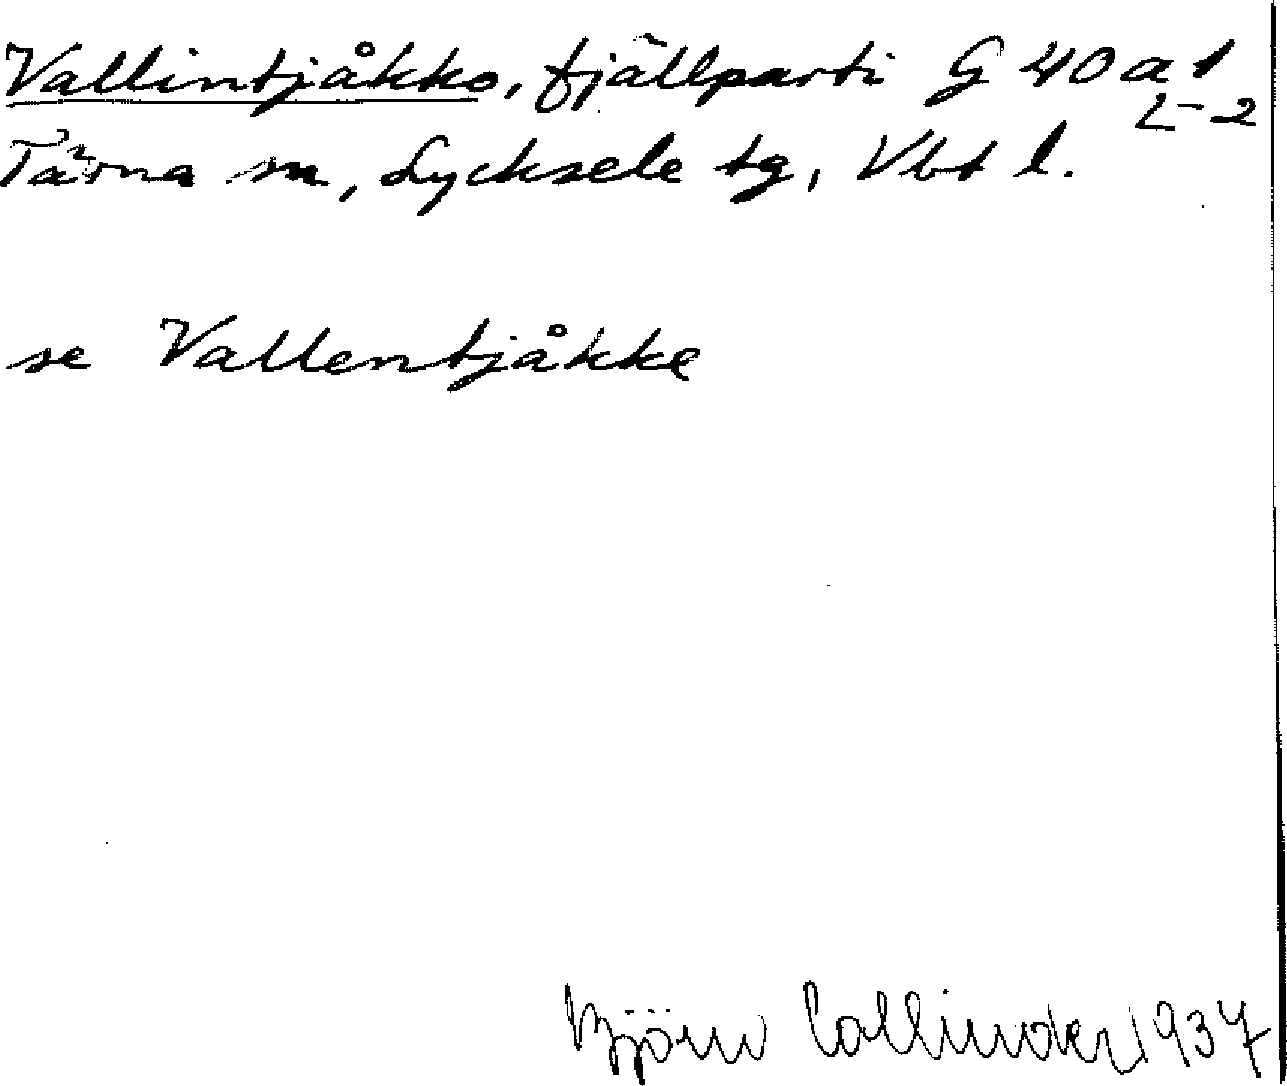 Vallintjåkko, fjällparti G 40 a 1
2-2
Tärna sn, Lycksele tg, Vbt l.
se Vallentjåkke
Björn Collinder 1937